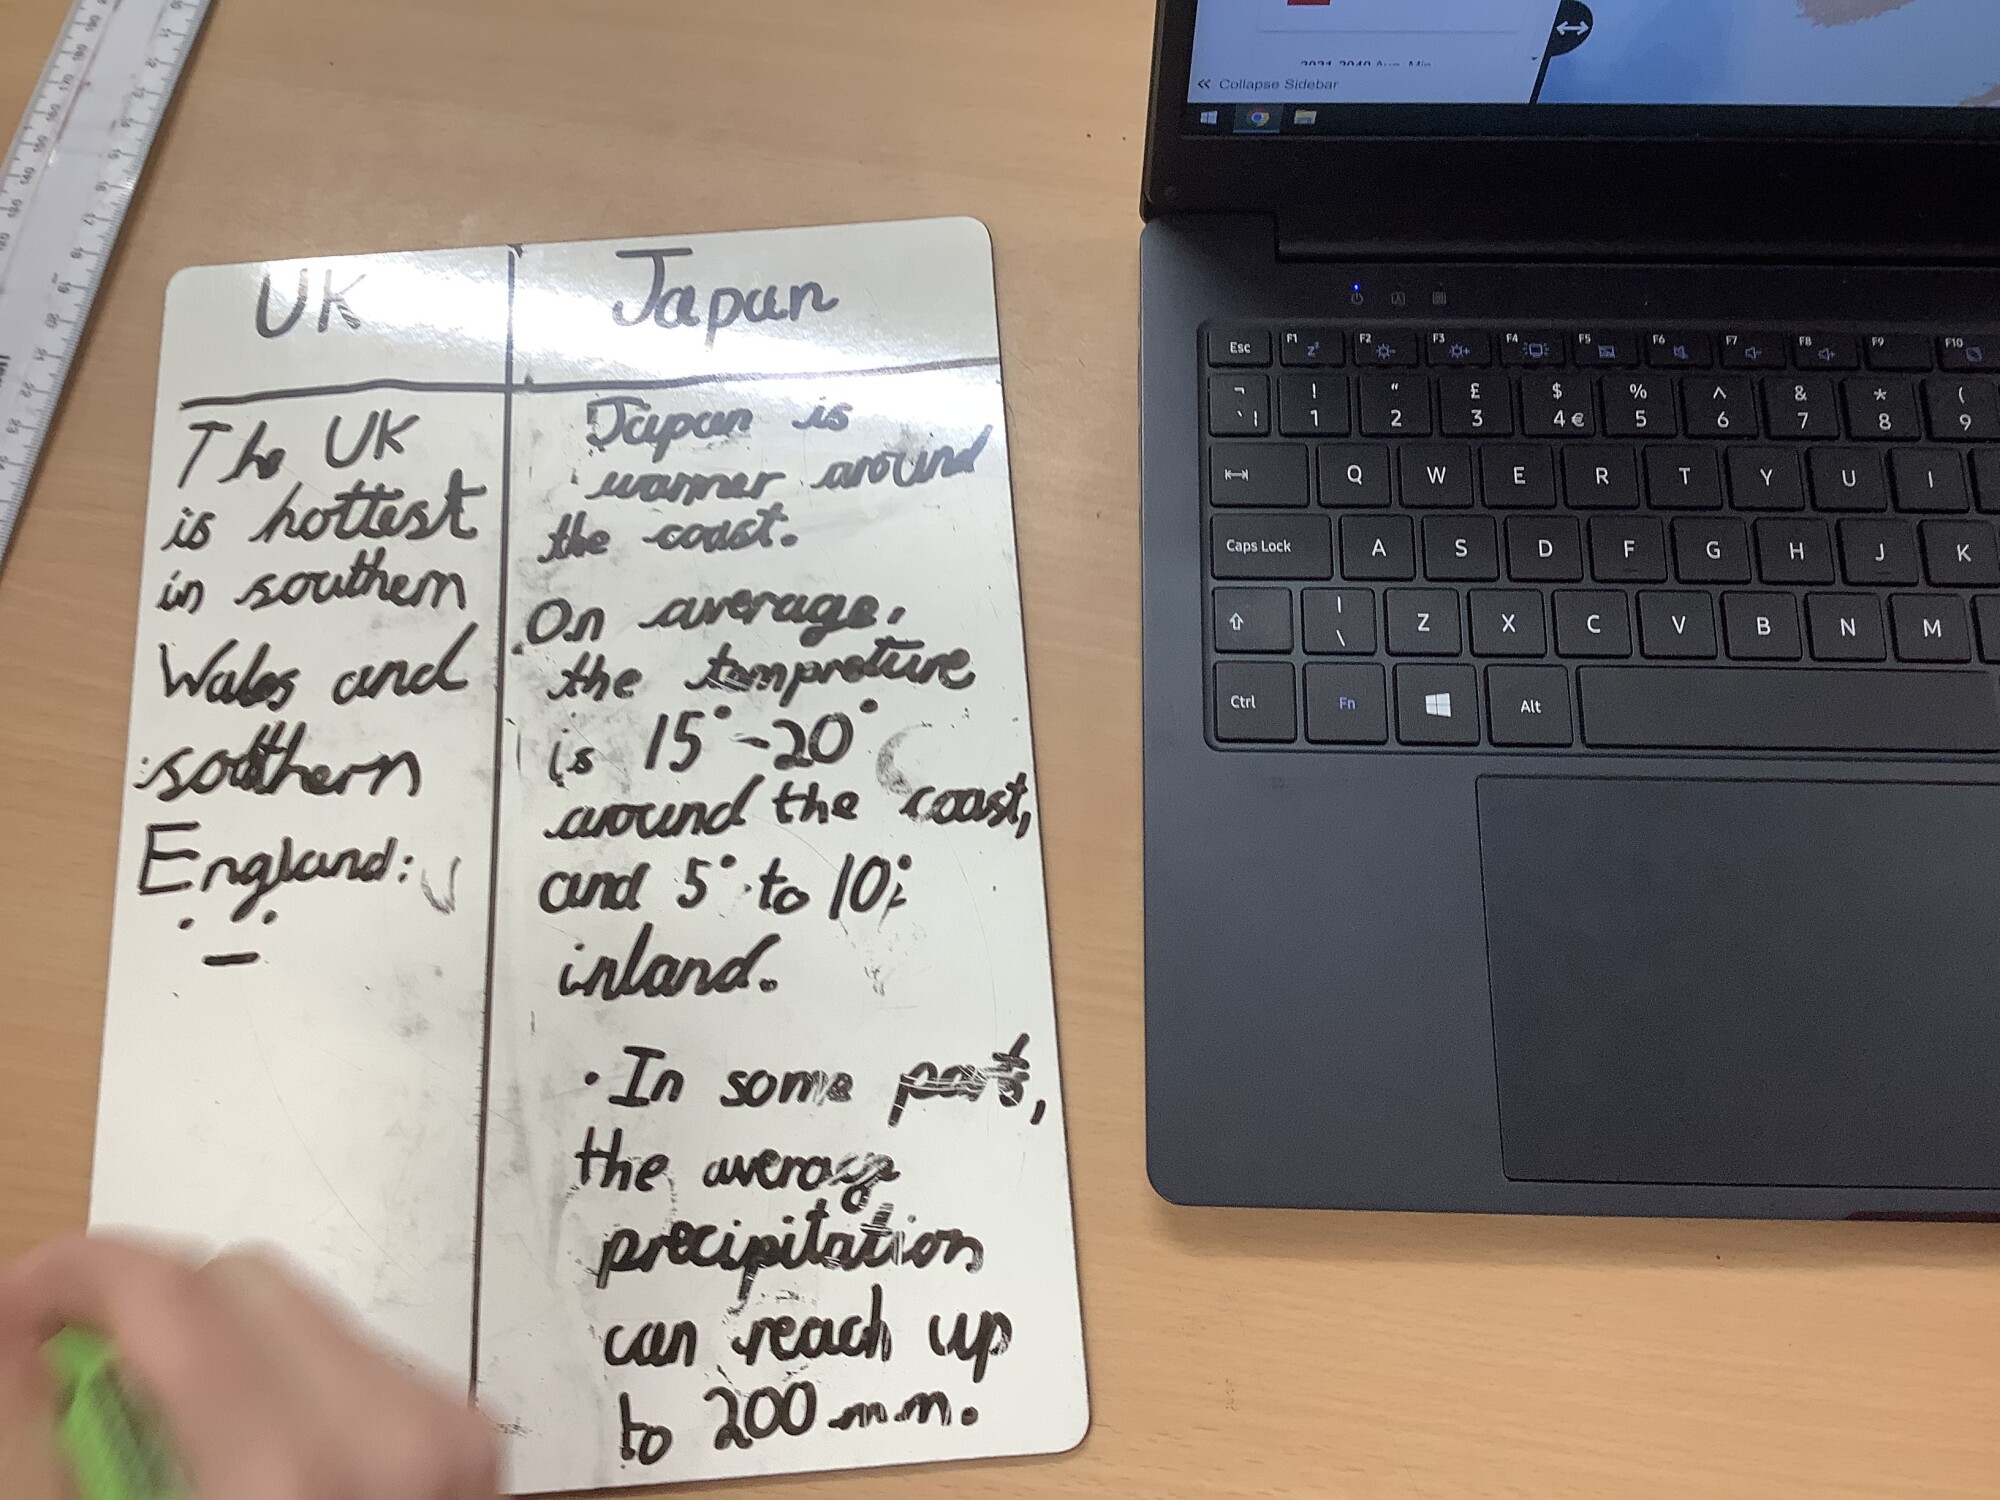 UK
The UK
is hottest
in southern
Wales and
southern
England:
Japan
Japan is
warmer around
the coast.
On average,
the tempreture
is 15°-20°
around the coast,
and 5° to 10°
inland.
• In some parts,
the average
precipitation
can reach up
to 200mm.
Collapse Sidebar
Esc F1 F2 F3 F4 F5 F6 F7 F8 F9 F10
¬ ! " £ $ % ^ & * (
` | 1 2 3 4 € 5 6 7 8 9
Q W E R T Y U I
Caps Lock A S D F G H J K
| \ Z X C V B N M
Ctrl Fn Alt